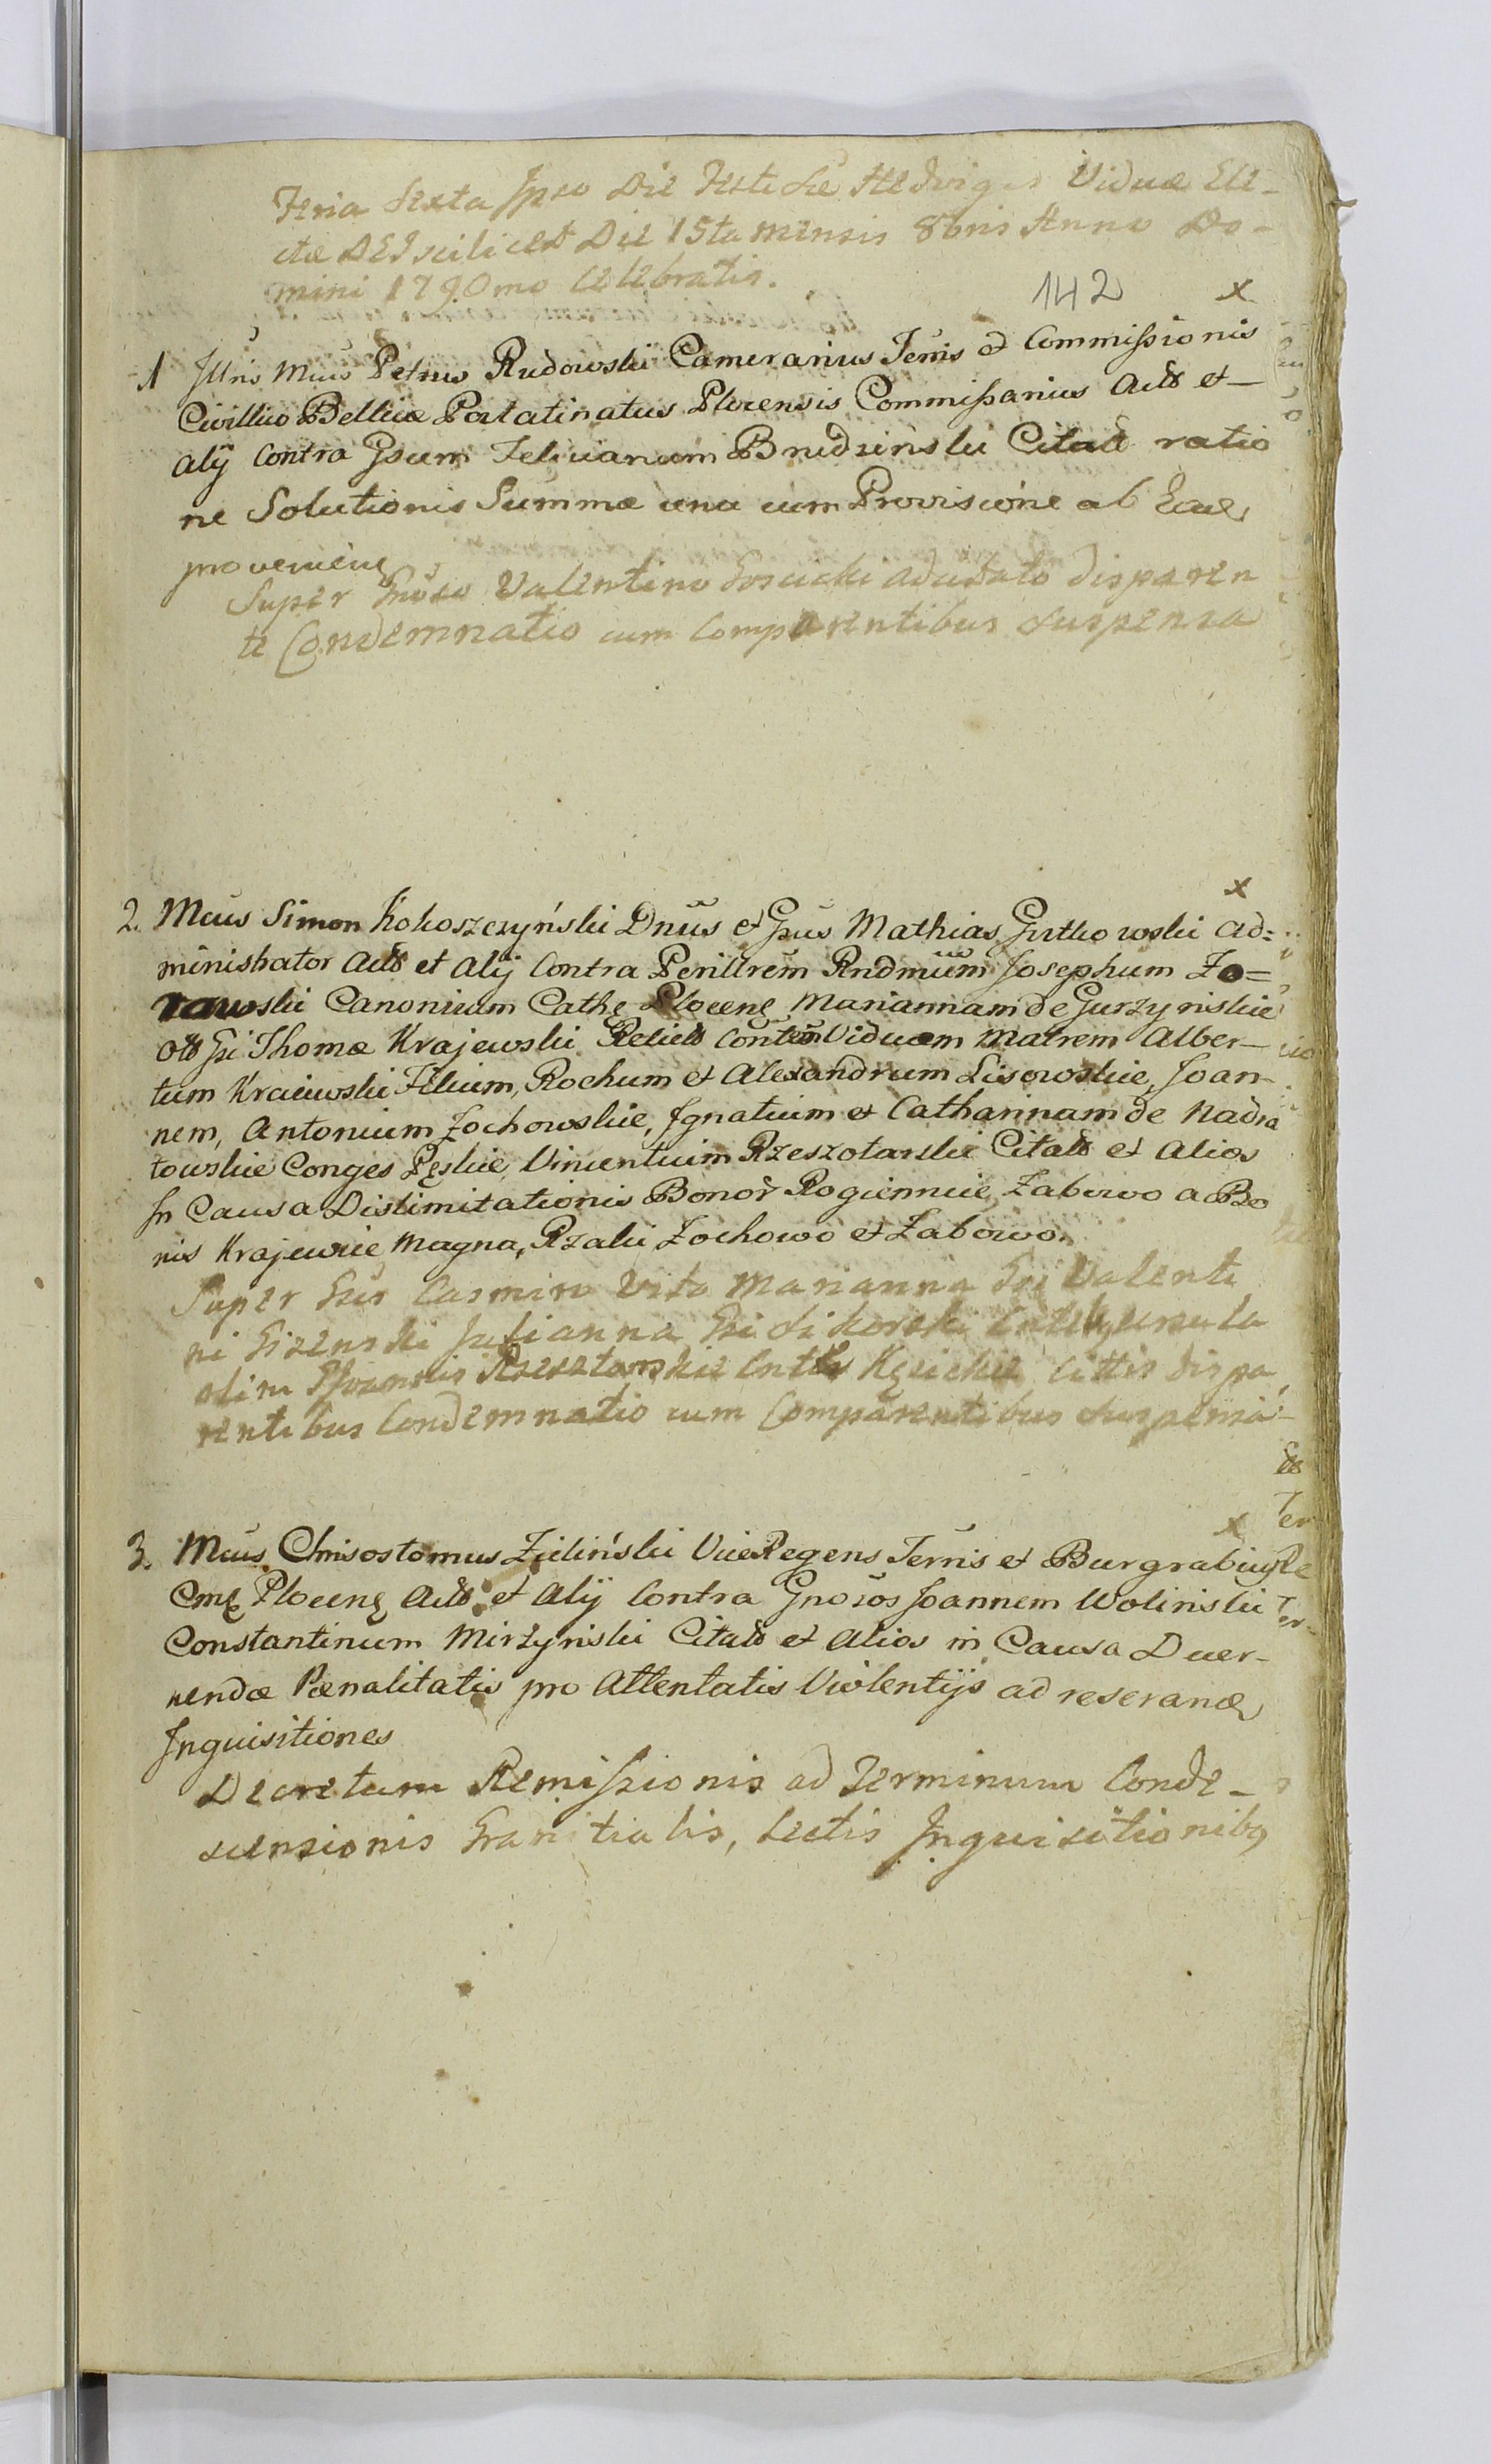 Feria Sexta Ipso Die Festi Stae Hedvigis Viduae Ele-
ctae DEI scilicet Die 15ta mensis 8bris Anno Do-
mini 1790mo Celebratis.
142 x
1 Illris Mcus Petrus Rudowski Camerarius Terris et Commissionis
Civillico Bellicae Pallatinatus Plocensis Commissarius Act et
alij Contra Gsum Felicianum Brudzinski Citat ratio
ne Solutionis Summae una cum Provisione ab Eae
provenien
Super Gnoso Valentino Gosicki aducato disparen
te Condemnatio cum Comparentibus suspensa
x
2. Mcus Simon Kokoszczyński Dnus et Gsus Mathias Gutkowski Ad=
ministrator Act et Alij Contra Perillrem Rndmum Josephum Zo=
rawski Canonicum Cathe Plocene Mariannam de Gurzynskie
olt Gsi Thomae Krajewski Relict Contem Viduam Matrem Alber-
tum Kraiewski Filium, Rochum et Alexandrum Lisowskie, Joan-
nem, Antonium Zochowskie, Ignatium et Catharinam de Nadra
towskie Conges Pęskie, Vincentium Rzeszotarski Citat et Alios
In Causa Dislimitationis Bonor Rogienice Zabowo a Bo
nis Krajewice Magna, Rzaki Zochowo et Zabowo.
Super Gsis Casmiro Vito Marianna Gsi Valenti
ni Gizenski Julianna Gsi Sikorski Ursula
olim Rzeszotarskie Kęsickie Cittis dispa
rentibus Condemnatio cum Comparentibus suspensa
x
3. Mcus Chrisostomus Zieliński ViceRegens Terris et Burgrabius
Cme Plocene Act et Alij Contra Gnosos Joannem Wolinski
Constantinum Mirzynski Citat et Alios in Causa Decer-
nendae Paenalitatis pro Attentatis Violentijs ad reserand
Inquisitiones
Decretum Remissionis ad Terminum Conde-
scensionis Granitialis, Lectis Inquisitionibq